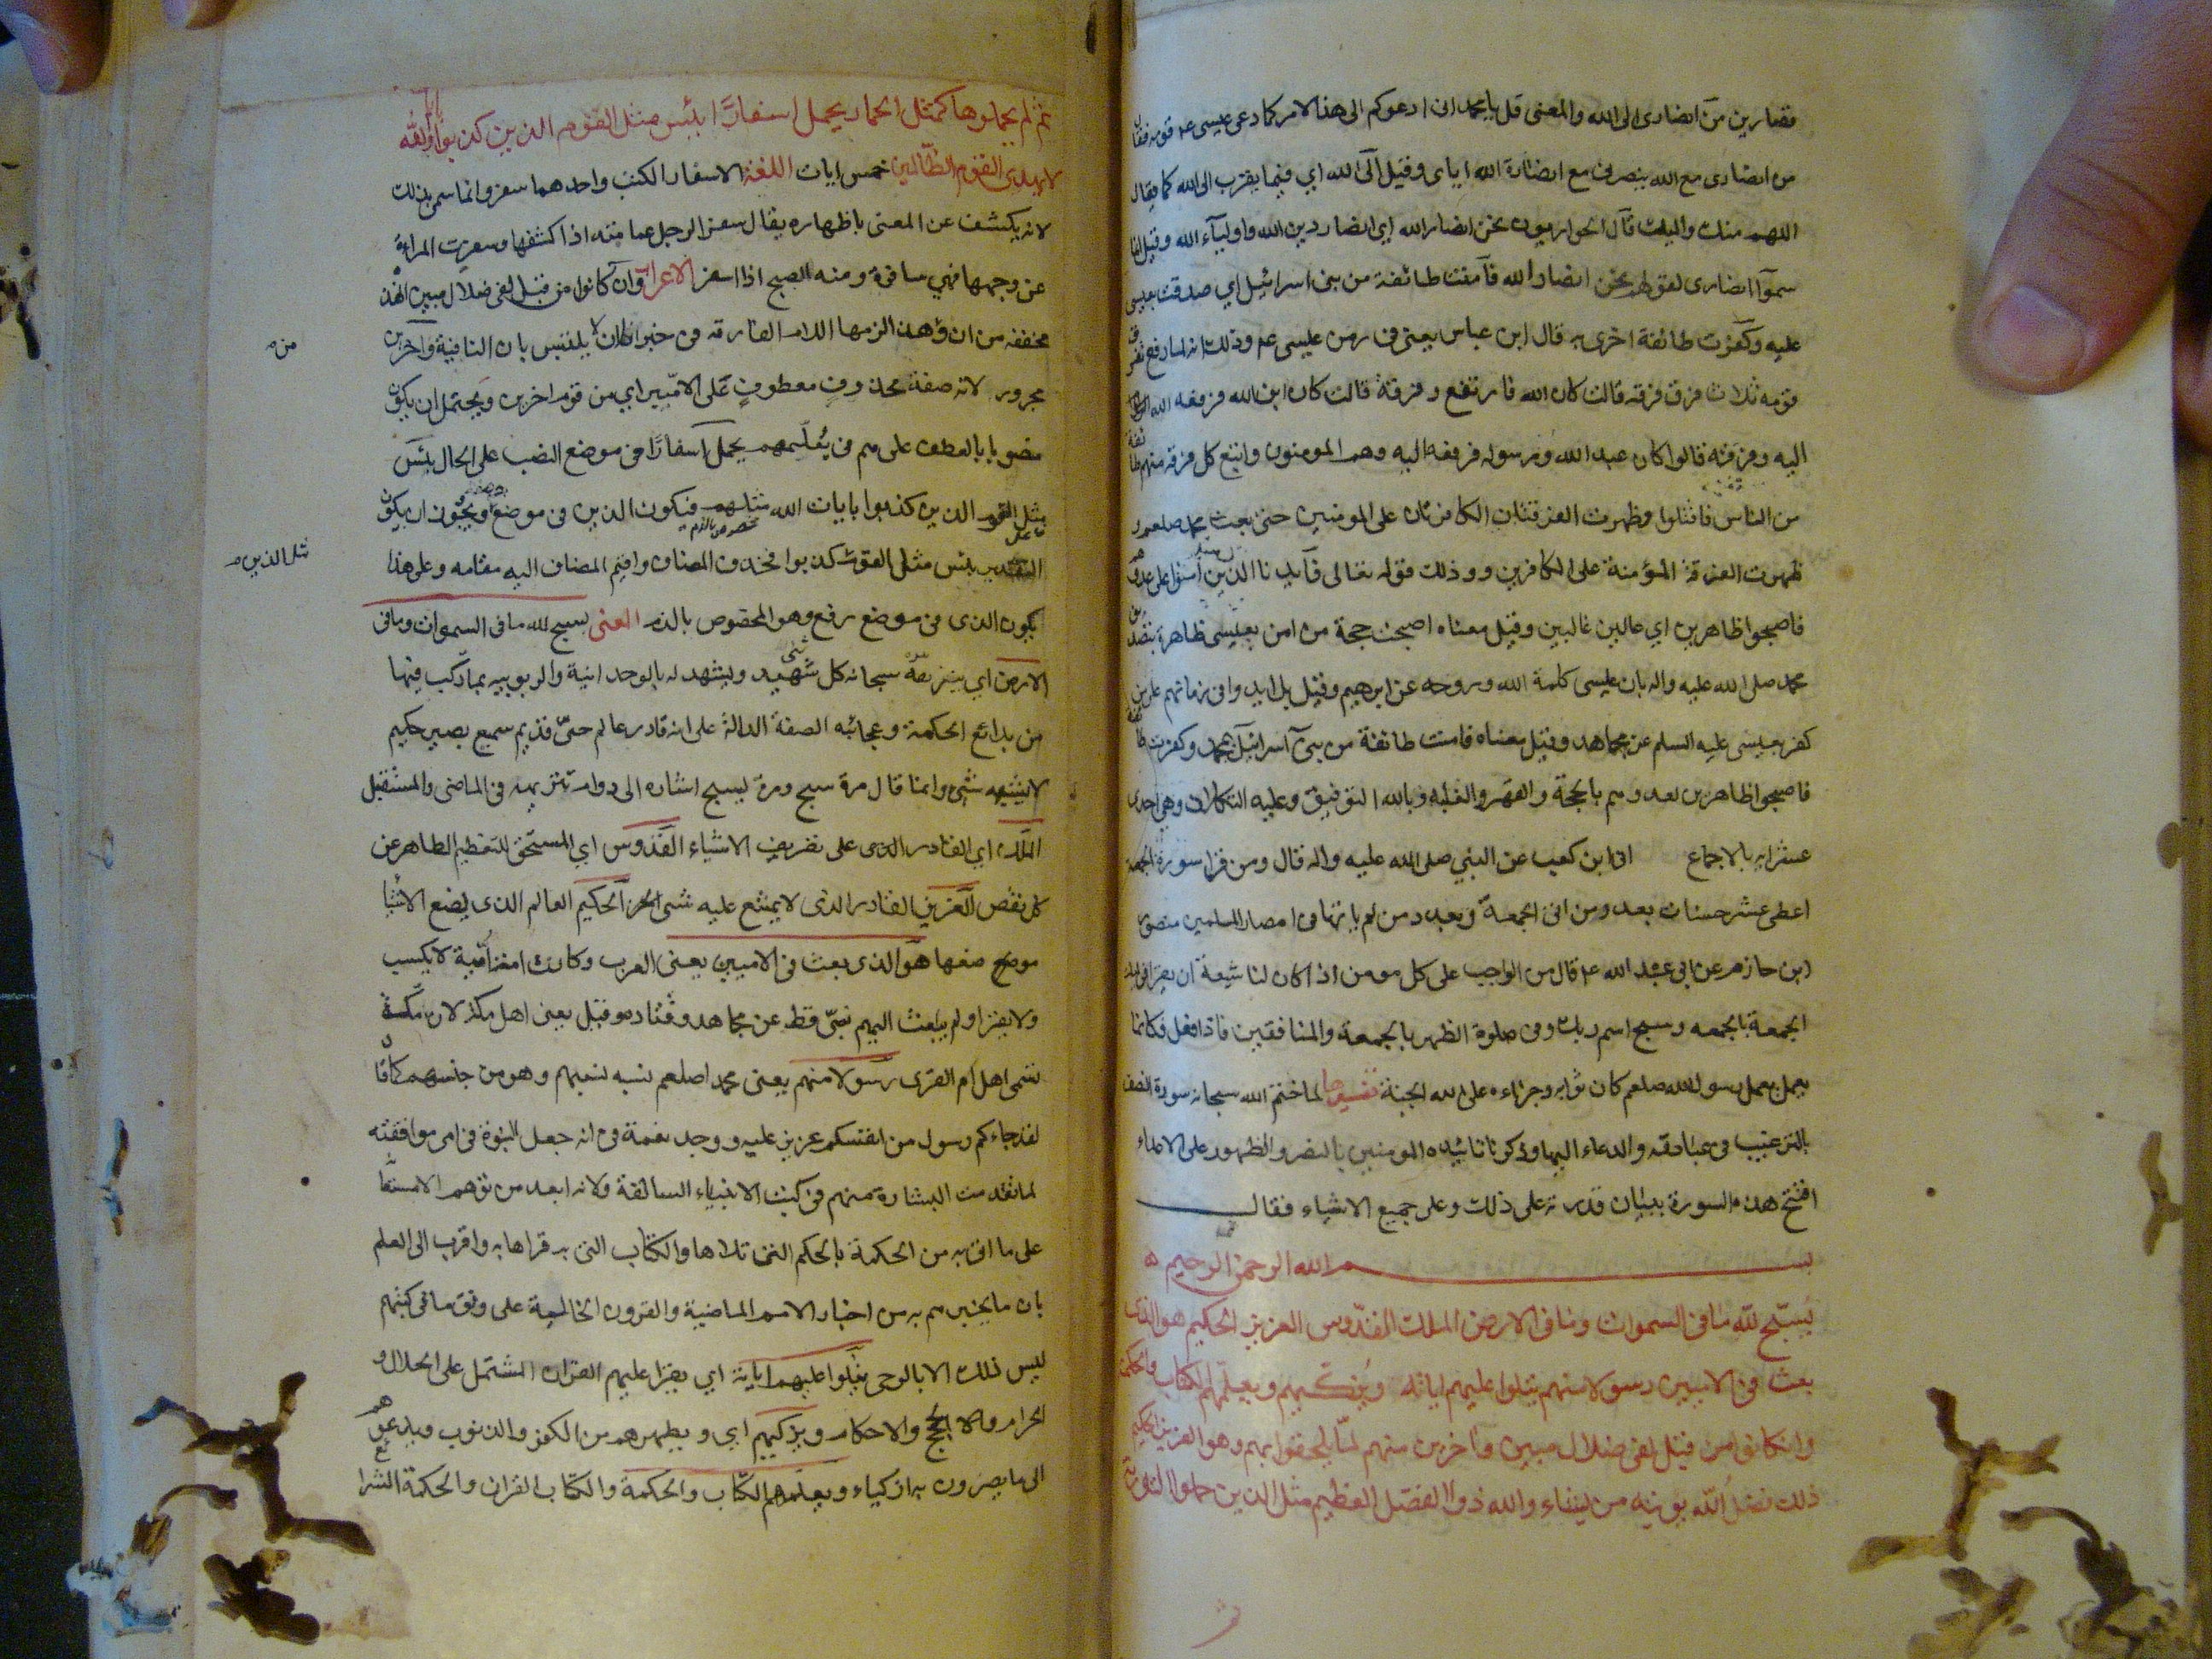 فصارين من انصارى الى الله والمعنى قل يا محمد انى ادعوكم الى هذا الامر كما دعى عيسى ع قومه فقال
من انصارى مع الله ينصرنى مع انصارة الله اياى وقيل الى الله اي فيما يقرب الى الله كما يقال
اللهم منك واليك قال الحواريون نحن انصار الله اي انصار دين الله واولياء الله وقيل انما
سموا انصارى لقولهم نحن انصار الله فآمنت طائفة من بنى اسرائيل اي صدقت بعيسى
عليه وكفرت طائفة اخرى به قال ابن عباس يعنى فى زمن عيسى عم وذلك انه لما رفع تفرق
قومه ثلاث فرق فرقه قالت كان الله فارتفع وفرقة قالت كان ابن الله فرفعه الله
اليه وفرقه قالوا كان عبد الله ورسوله فرفعه اليه وهم المومنون واتبع كل فرقه منهم طائفة
من الناس فاقتتلوا وظهرت الفرقتان الكافرتان على المومنين حتى بعث محمد صلعم
ظهرت الفرقة المؤمنة على الكافرين وذلك قوله تعالى فآيدنا الذين آمنوا على عدوهم
فاصبحوا ظاهرين اي عالين غالبين وقيل معناه اصبحت حجة من امن بعيسى ظاهرة بتصديق
محمد صلى الله عليه واله بان عيسى كلمة الله وروحه عن ابرهيم وقيل بل ايدوا فى زمانهم على من
كفر بعيسى عليه السلم عن مجاهد وقيل معناه فامنت طائفة من بنى آسرائيل بمحمد وكفرت طائفة
فاصبحوا ظاهرين لعدوهم بالحجة والقهر والغلبه وبالله التوفيق وعليه التكلان وهى احدى
عشر ايه بالاجماع ابى ابن كعب عن النبي صلى الله عليه واله قال ومن قرا سورة الجمعة
اعطى عشر حسنات بعدد من اتى الجمعة وبعدد من لم ياتها فى امصار المسلمين منصور
ابن حازم عن ابى عبد الله ع قال من الواجب على كل مومن اذا كان لنا شيعة ان يقرا فى ليلة
الجمعة بالجمعه وسبح اسم ربك وفى صلوة الظهر بالجمعة والمنافقين فاذا فعل فكانما
يعمل بعمل رسول الله صلعم كان ثوابه وجزاءه على الله الجنة تفسيرها لما ختم الله سبحانه سورة الصف
بالترغيب فى عبادته والدعاء اليها وذكر تائيده المومنين بالنصر والظهور على الاعداء
افتتح هذه السورة ببيان قدرته على ذلك وعلى جميع الاشياء فقال
بسم الله الرحمن الرحيم
يسبح لله ما فى السموات وما فى الارض الملك القدوس العزيز الحكيم هو الذى
بعث فى الاميين رسولا منهم يتلوا عليهم اياته ويزكيهم ويعلمهم الكتاب والحكمة
وان كانوا من قبل لفى ضلال مبين وآخرين منهم لما يلحقوا بهم وهو العزيز الحكيم
ذلك فضل الله يوتيه من يشاء والله ذو الفضل العظيم مثل الذين حملوا التورية
ثم
ثم لم يحملوها كمثل الحمار يحمل اسفارا بئس مثل القوم الذين كذبوا بايات الله والله
لا يهدى القوم الظالمين خمس ايات اللغة الاسفار الكتب واحدهما سفر وانما سمى بذلك
لانه يكشف عن المعنى باظهاره يقال سفر الرجل عمامته اذا كشفها وسفرت المراة
عن وجهها فهي سافرة ومنه الصبح اذا اسفر الاعراب وان كانوا من قبل لفى ضلال مبين ان هذه
مخففه من ان ولهذا لزمها اللام الفارقه فى خبر كان لا يلتبس بان النافية وآخرين
مجرور لانه صفة محذوف معطوف على الاميين اي من قوم اخرين ويحتمل ان يكون
منصوبا بالعطف على هم فى يعلمهم يحمل اسفارا فى موضع النصب على الحال بئس
مثل القوم الذين كذبوا بايات الله مثلهم فيكون الذين فى موضع ويجوز ان يكون
التقدير بئس مثل القوم كذبوا فحذف المضاف واقيم المضاف اليه مقامه وعلى هذا
مثل الذين
يكون الذى فى موضع رفع وهو المخصوص بالذم المعنى يسبح لله ما فى السموات وما فى
الارض اي ينزهه سبحانه كل شئ ويشهد له بالوحدانية والربوبيه بما ركب فيها
من بدائع الحكمة وعجائبه الصفة الدالة على انه قادر عالم حى قديم سميع بصير حكيم
لا يشبهه شئ وانما قال مرة سبح ومرة يسبح اشاره الى دوام تنزيهه فى الماضى والمستقبل
الملك اي القادر الذى على تصريف الاشياء القدوس اي المستحق للتعظيم الطاهر عن
كل نقص العزيز القادر الذى لا يمتنع عليه شئ الحكيم العالم الذى يضع الاشيا
موضعها هو الذى بعث فى الاميين يعنى العرب وكانت امة امية لا يكتب
ولا يقرا ولم يبعث اليهم نبى قط عن مجاهد وقتاده وقيل يعنى اهل مكة لان مكة
تسمى اهل ام القرى رسولا منهم يعنى محمدا صلعم نسبه نسبهم وهو من جنسهم كما قال
لقد جاءكم رسول من انفسكم عزيز عليه ووجه نعمة فى انه جعل النبوة فى امى موافقته
لما تقدمت البشارة منهم فى كتب الانبياء السالفة ولانه ابعد من توهم الاستعا
على ما اتى به من الحكمة بالحكم التى تلاها والكتاب التى به قراها به واقرب الى العلم
بان ما يخبرهم به من اخبار الامم الماضية والقرون الخالية على وفق ما فى كتبهم
ليس ذلك الا بالوحى يتلوا عليهم اياته اي يقرا عليهم القران المشتمل على الحلال و
الحرام والحجج والاحكام ويزكيهم اي ويطهرهم من الكفر والذنوب ويدعوهم
الى ما يصيرون به ازكياء ويعلمهم الكتاب والحكمة والكتاب القران والحكمة الشرا